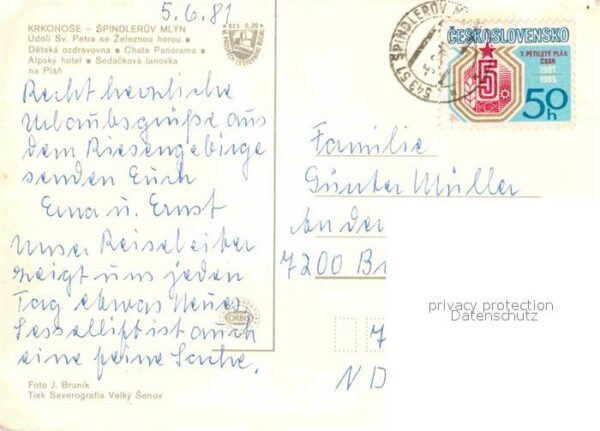 5.6.81
KRKONOŠE – ŠPINDLERŮV MLÝN
Údolí Sv. Petra se Železnou horou •
Dětská ozdravovna • Chata Panorama •
Alpský hotel • Sedačková lanovka
na Pláň
Kčs 0,20
Recht herzliche
Urlaubsgrüße aus
dem Riesengebirge
senden Euch
Erna u. Ernst
Unser Reiseleiter
zeigt uns jeden
Tag etwas Neues
Sessellift ist auch
eine feine Sache.
ORBIS
Foto J. Brunik
Tisk Severografia Velký Šenov
543 51 ŠPINDLERŮV M
ČESKOSLOVENSKO
7. PĚTILETÝ PLÁN
ČSSR
1981
1985
5
50h
Familie
Günter Müller
An der
7200 B
7
N D
privacy protection
Datenschutz